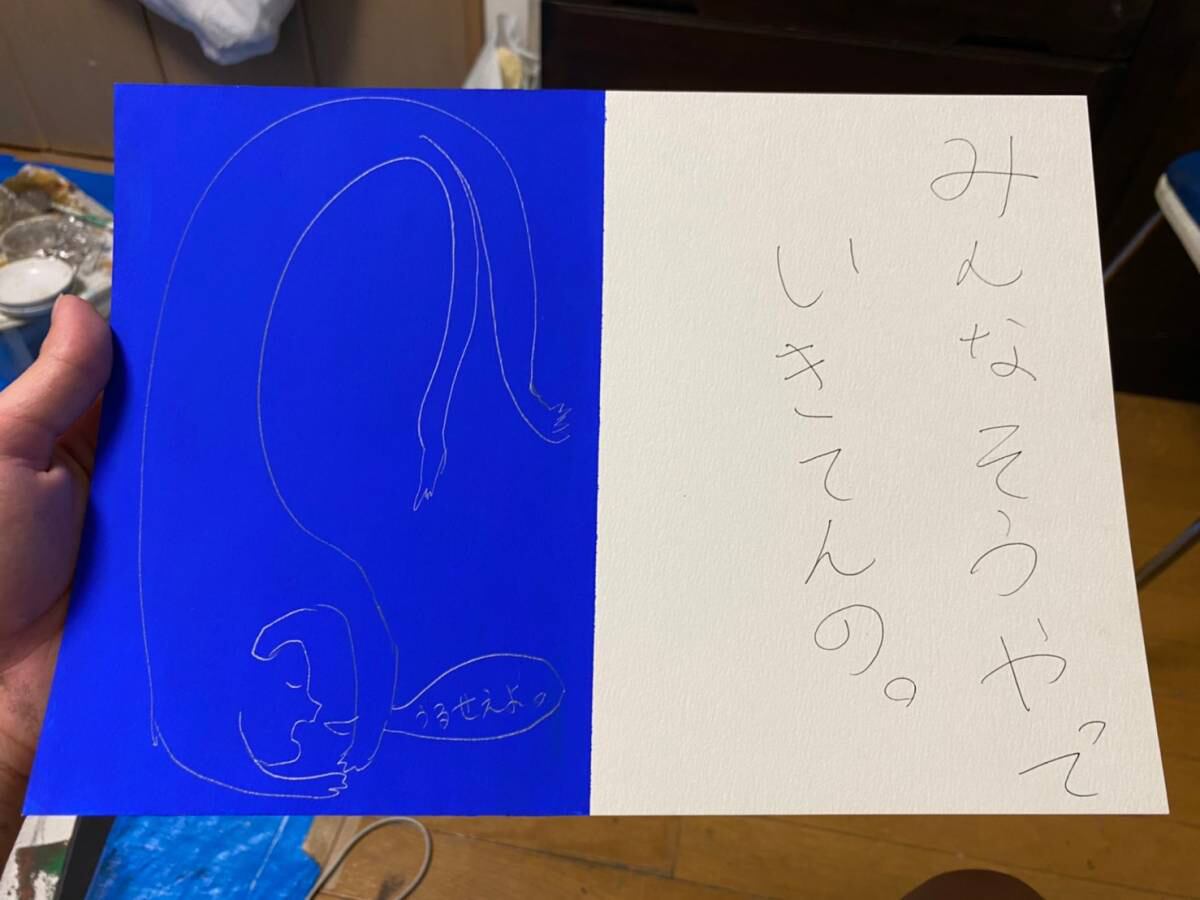 みんなそうやで
いきてんの。
うるせえよっ